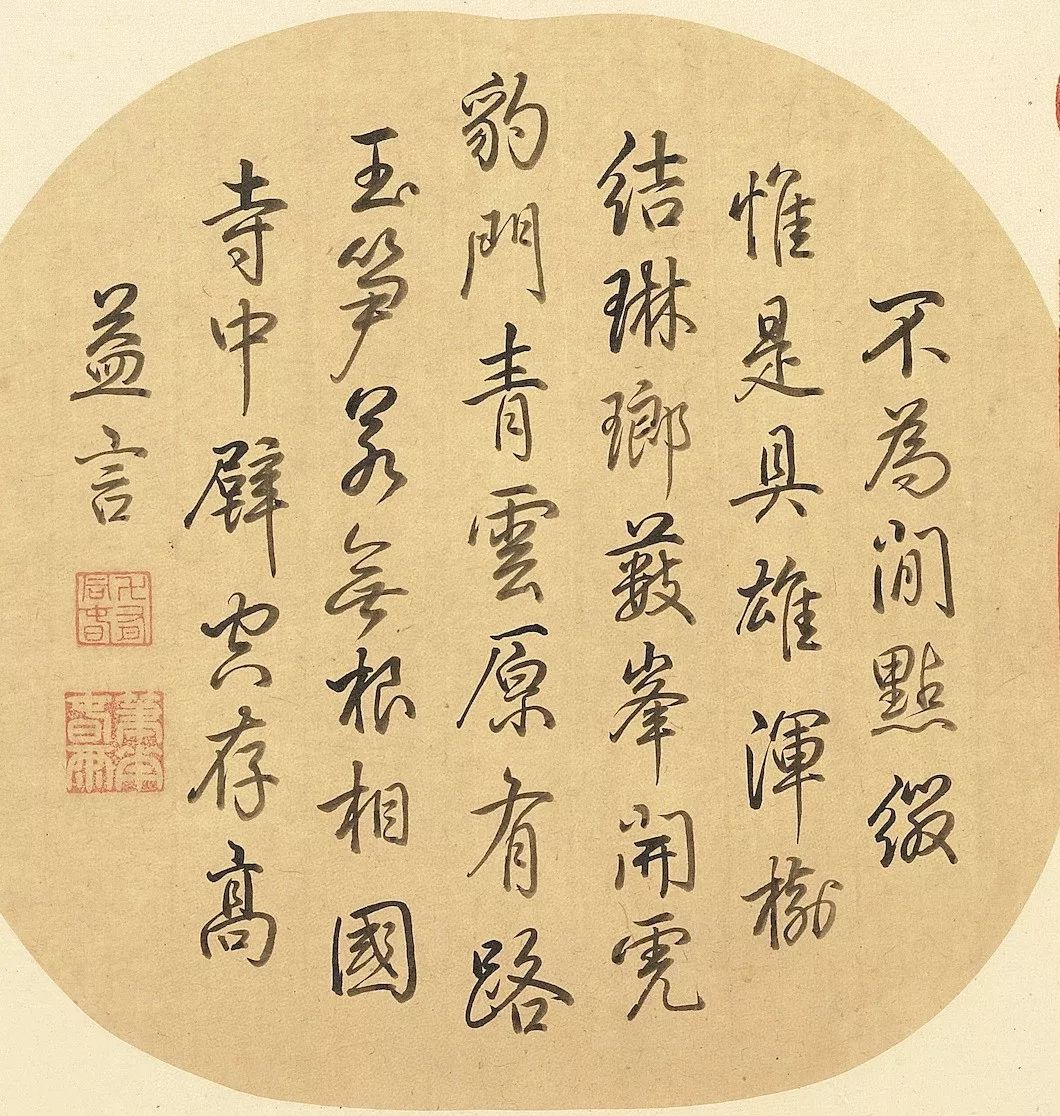 不為閒點綴
惟是具雄渾樹
結琳瑯藪峯開虎
豹門青雲原有路
玉笋若無根相國
寺中壁空存高
益言